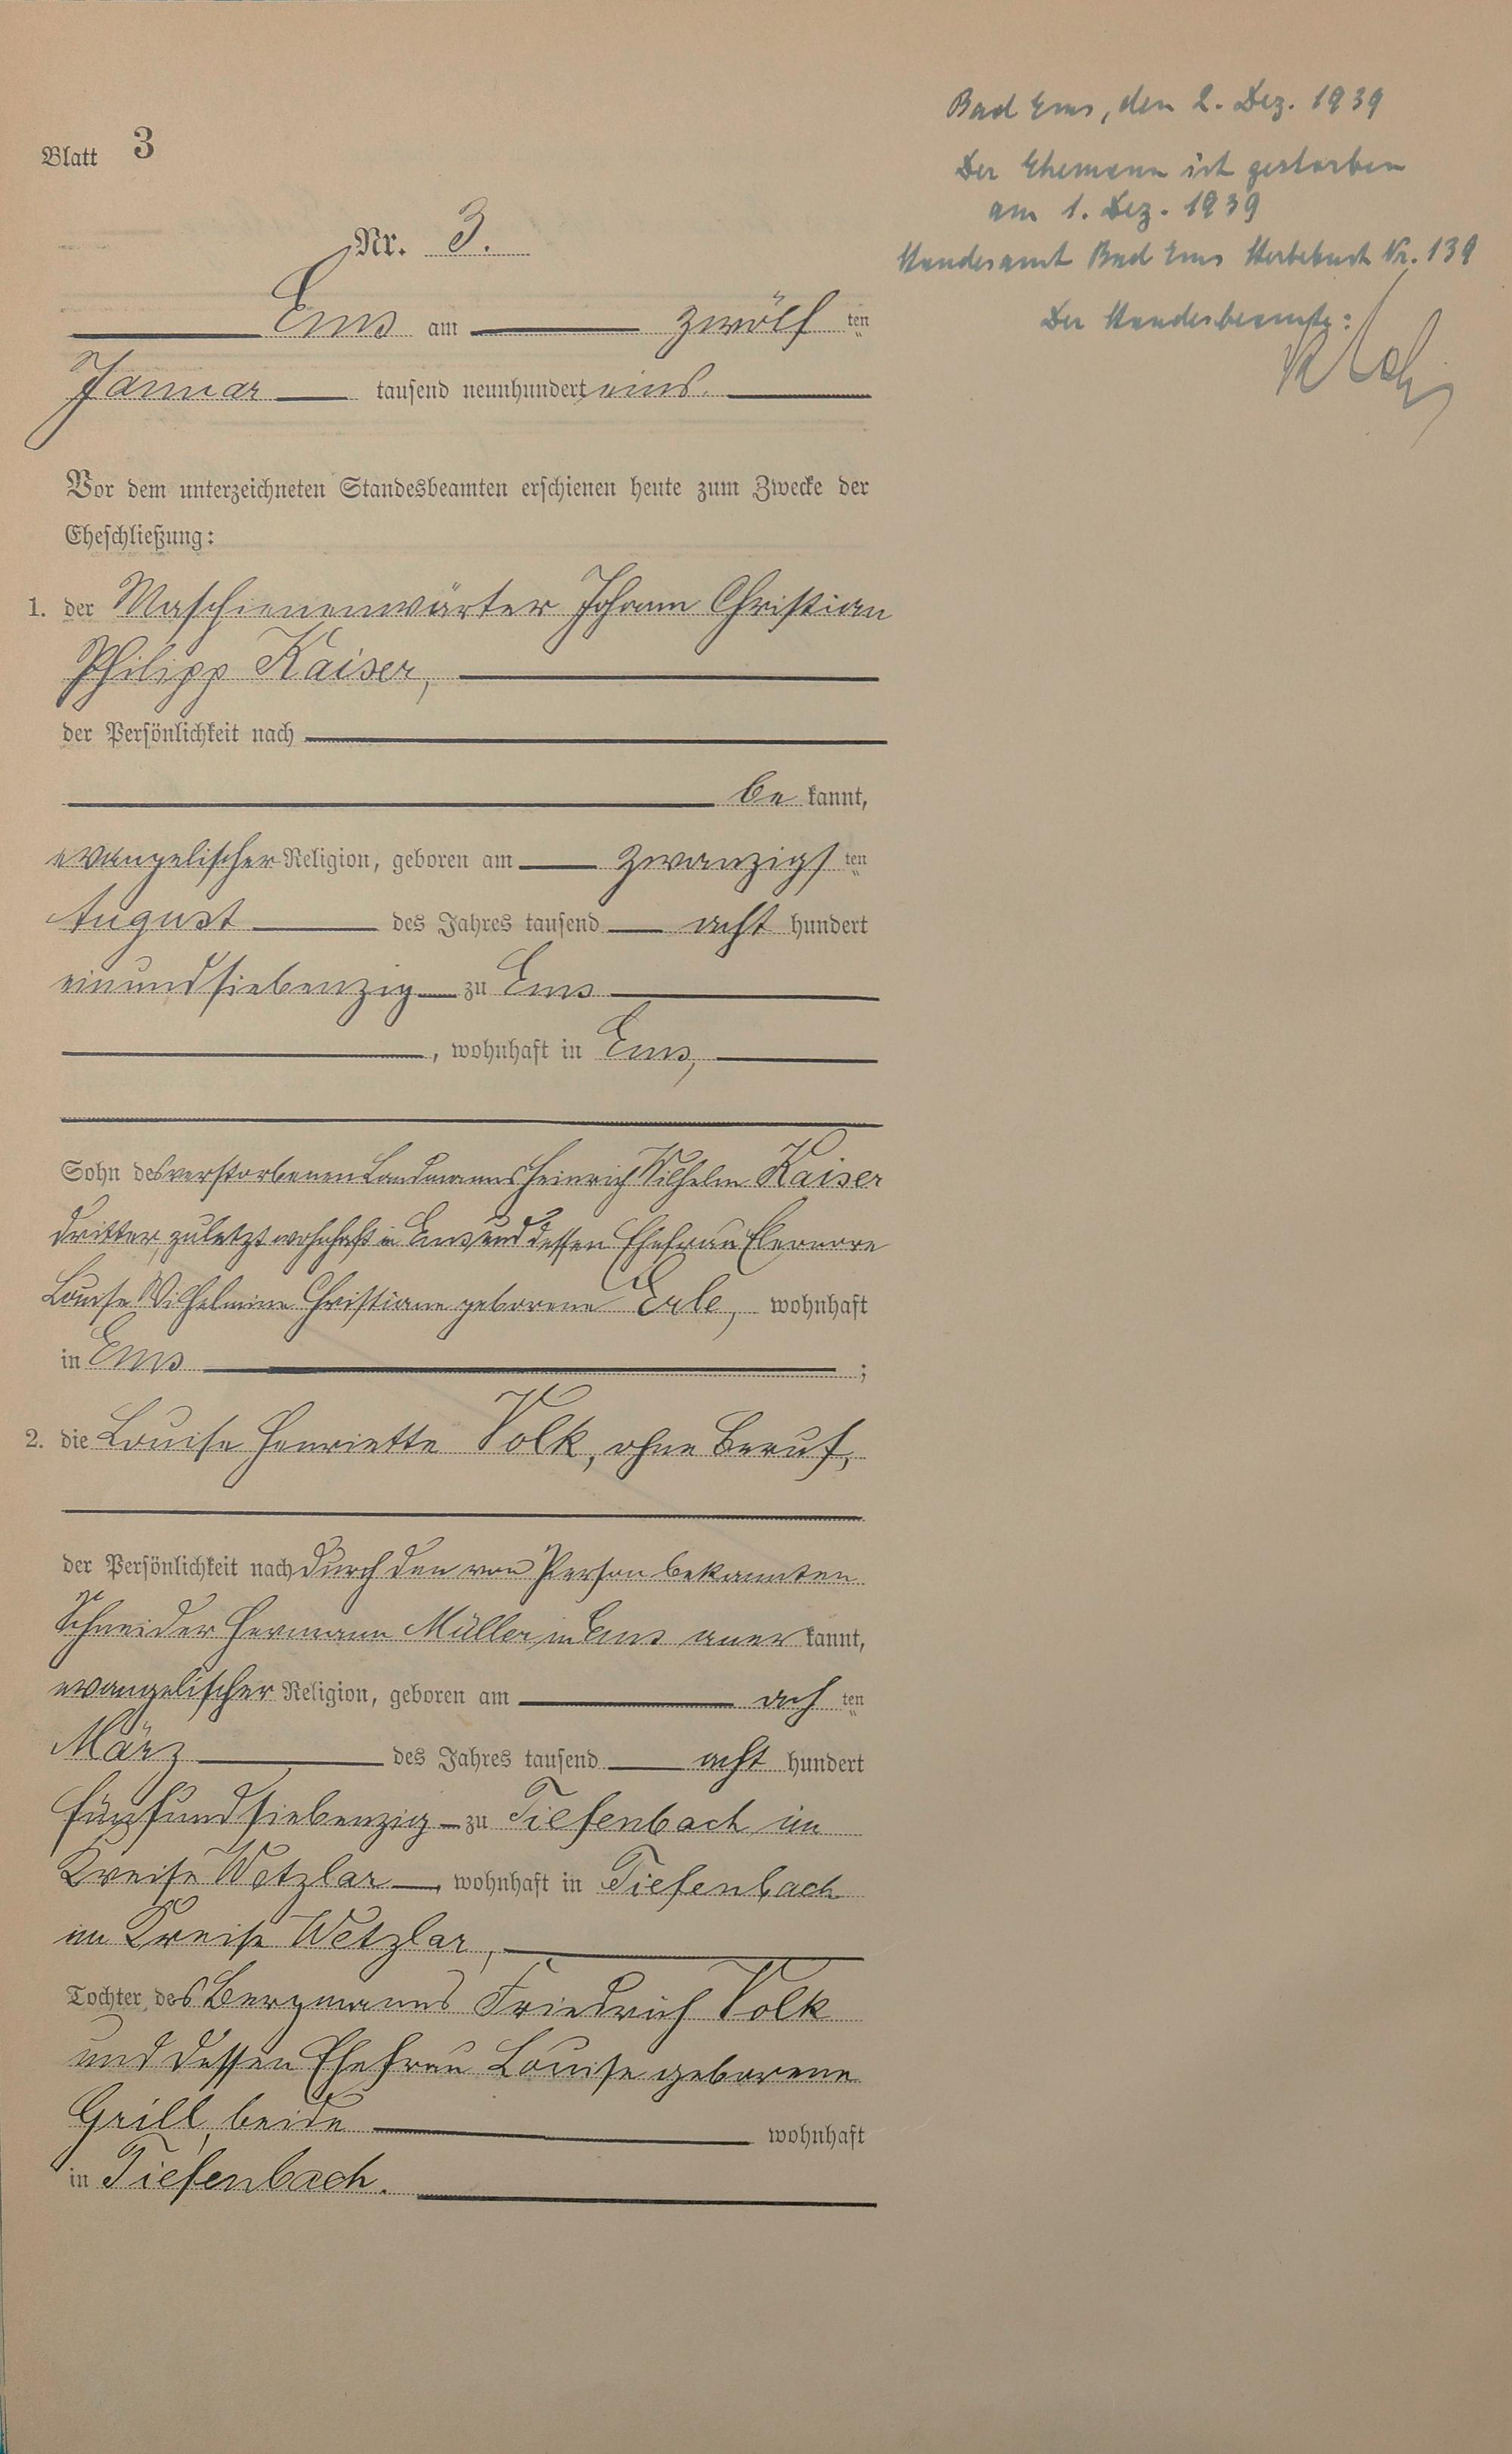 Blatt 3
Nr. 3.
Ems am zwölf ten
Januar tausend neunhundert eins.
Vor dem unterzeichneten Standesbeamten erschienen heute zum Zwecke der
Eheschließung:
1. der Maschienenwärter Johann Christian
Philipp Kaiser,
der Persönlichkeit nach
be kannt,
evangelischer Religion, geboren am zwanzigs ten
August des Jahres tausend acht hundert
einundsiebenzig zu Ems
, wohnhaft in Ems,
Sohn des verstorbenen Landmanns Heinrich Wilhelm Kaiser
dritter, zuletzt wohnhaft in Ems und dessen Ehefrau Eleonore
Louise Wilhelmine Christiane geborene Erle, wohnhaft
in Ems ;
2. die Louise Henriette Volk, ohne Beruf,
der Persönlichkeit nach durch den von Person bekannten
Schneider Hermann Müller in Ems aner kannt,
evangelischer Religion, geboren am ach ten
März des Jahres tausend acht hundert
fünfundsiebenzig zu Tiefenbach im
Kreise Wetzlar, wohnhaft in Tiefenbach
im Kreise Wetzlar,
Tochter des Bergmanns Friedrich Volk
und dessen Ehefrau Louise geborene
Grill, beide wohnhaft
in Tiefenbach.
Bad Ems, den 2. Dez. 1939
Der Ehemann ist gestorben
am 1. Dez. 1939
Standesamt Bad Ems Sterbebuch Nr. 139
Der Standesbeamte: